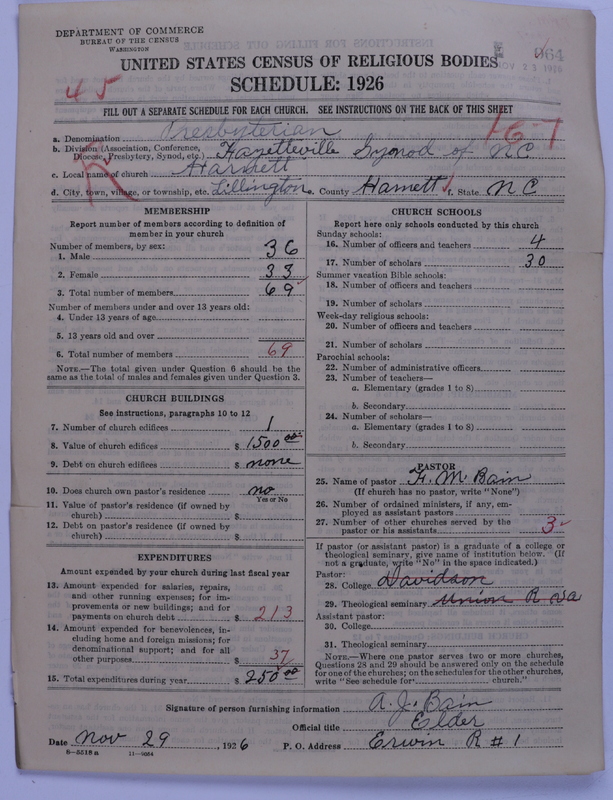 DEPARTMENT OF COMMERCE
BUREAU OF THE CENSUS
WASHINGTON
964
NOV 23 1926
UNITED STATES CENSUS OF RELIGIOUS BODIES
SCHEDULE: 1926
45
FILL OUT A SEPARATE SCHEDULE FOR EACH CHURCH. SEE INSTRUCTIONS ON THE BACK OF THIS SHEET
16-1
R
a. Denomination Presbyterian
b. Division (Association, Conference, Diocese, Presbytery, Synod, etc.) Fayetteville Synod of N C
c. Local name of church Harnett
d. City, town, village, or township, etc. Lillington e. County Harnett f. State N C
MEMBERSHIP
Report number of members according to definition of
member in your church
Number of members, by sex:
1. Male 36
2. Female 33
3. Total number of members 69
Number of members under and over 13 years old:
4. Under 13 years of age
5. 13 years old and over
6. Total number of members 69
NOTE.—The total given under Question 6 should be the
same as the total of males and females given under Question 3.
CHURCH BUILDINGS
See instructions, paragraphs 10 to 12
7. Number of church edifices 1
8. Value of church edifices $ 1500 00
9. Debt on church edifices $ none
10. Does church own pastor's residence no
Yes or No
11. Value of pastor's residence (if owned by
church) $
12. Debt on pastor's residence (if owned by
church) $
EXPENDITURES
Amount expended by your church during last fiscal year
13. Amount expended for salaries, repairs,
and other running expenses; for im-
provements or new buildings; and for
payments on church debt $ 213
14. Amount expended for benevolences, in-
cluding home and foreign missions; for
denominational support; and for all
other purposes $ 37
15. Total expenditures during year $ 250 00
CHURCH SCHOOLS
Report here only schools conducted by this church
Sunday schools:
16. Number of officers and teachers 4
17. Number of scholars 30
Summer vacation Bible schools:
18. Number of officers and teachers
19. Number of scholars
Week-day religious schools:
20. Number of officers and teachers
21. Number of scholars
Parochial schools:
22. Number of administrative officers
23. Number of teachers—
a. Elementary (grades 1 to 8)
b. Secondary
24. Number of scholars—
a. Elementary (grades 1 to 8)
b. Secondary
PASTOR
25. Name of pastor F. M. Bain
(If church has no pastor, write "None")
26. Number of ordained ministers, if any, em-
ployed as assistant pastors
27. Number of other churches served by the
pastor or his assistants 3
If pastor (or assistant pastor) is a graduate of a college or
theological seminary, give name of institution below. (If
not a graduate, write "No" in the space indicated.)
Pastor:
28. College Davidson
29. Theological seminary Union R Va
Assistant pastor:
30. College
31. Theological seminary
NOTE.—Where one pastor serves two or more churches,
Questions 28 and 29 should be answered only on the schedule
for one of the churches; on the schedules for the other churches,
write "See schedule for church."
Signature of person furnishing information A. J. Bain
Official title Elder
Date Nov 29, 1926 P. O. Address Erwin R # 1
8-5518a 11-9064